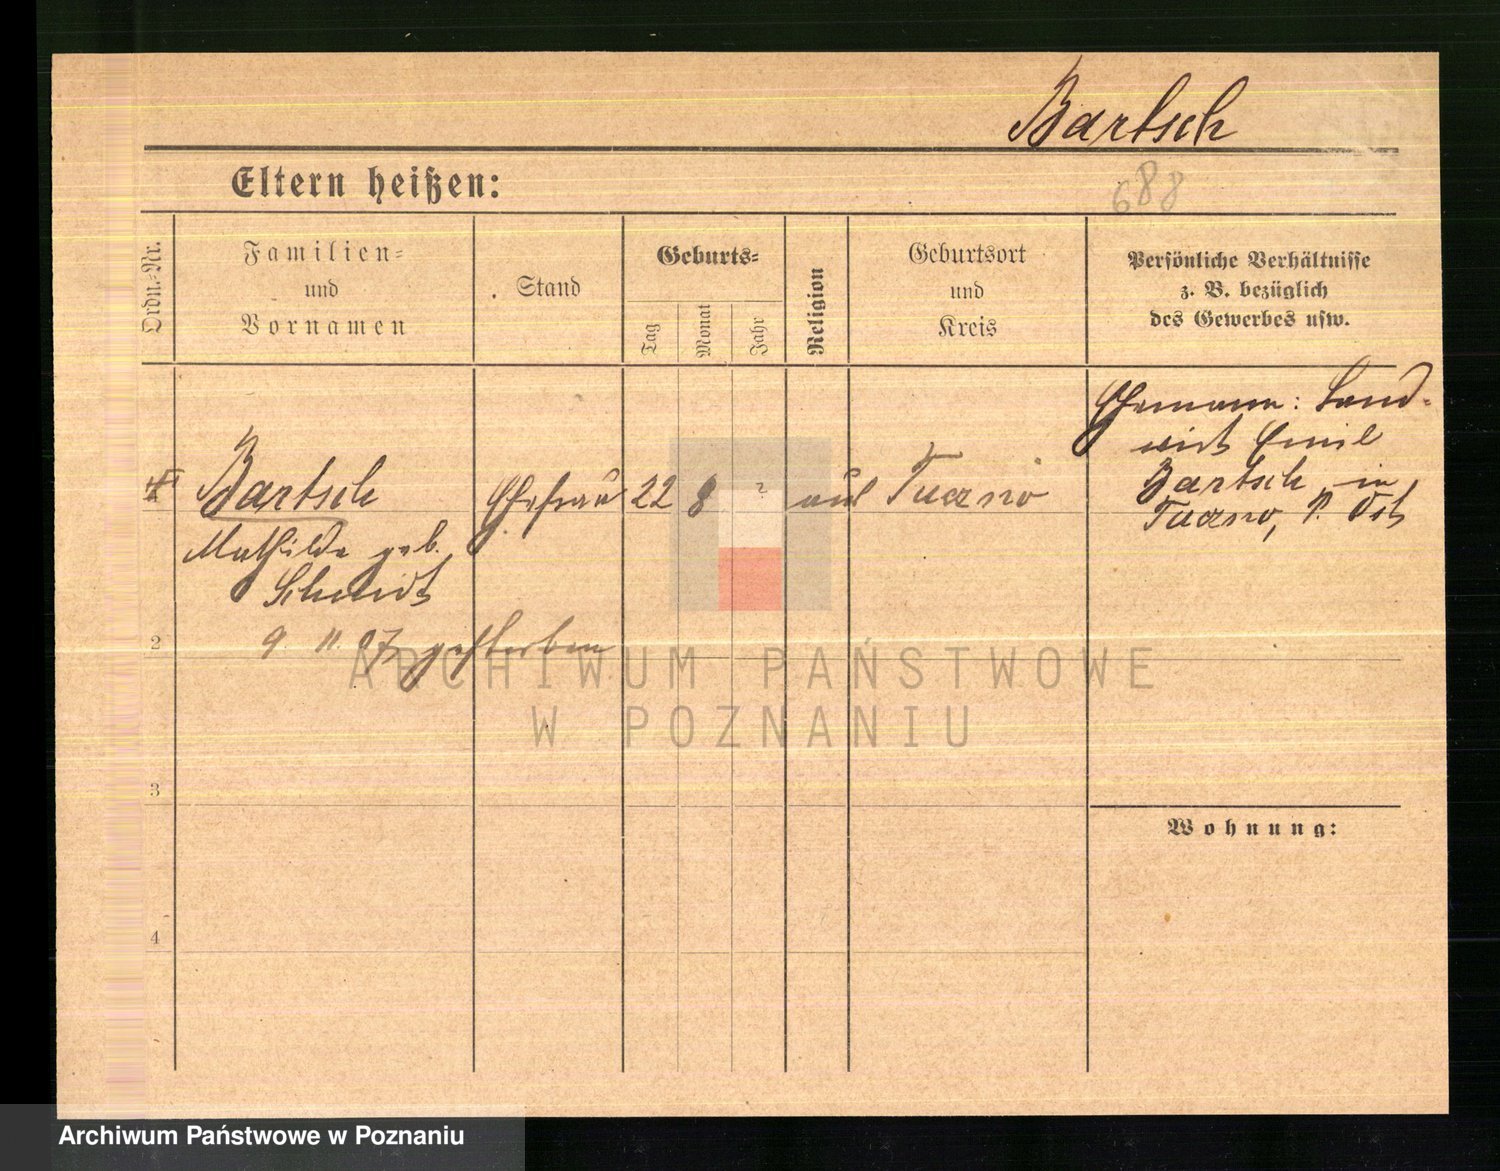 Bartsch
Eltern heißen:
688
Ordn.-Nr.
Familien-
und
Vornamen
Stand
Geburts-
Tag
Monat
Jahr
Religion
Geburtsort
und
Kreis
Persönliche Verhältnisse
z. B. bezüglich
des Gewerbes usw.
Bartsch
Mathilde geb.
Schmidt
9. 11. 07 gestorben
Ehefrau
22 8 ?
aus Tuczno
Ehemann: Land-
wirt Emil
Bartsch in
Tuczno, P. Ost
2
3
4
Wohnung:
ARCHIWUM PAŃSTWOWE
W POZNANIU
Archiwum Państwowe w Poznaniu